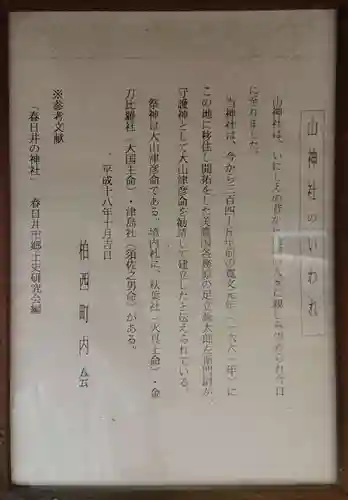 山神社のいわれ
山神社は、いにしえの昔から
に至れました。
当神社は、今から三百四十五年前の寛文元年(一六六一年)に
この地に移住し開拓をした美濃国各務原の足立義太郎左衛門尉が
守護神として大山津彦命を勧請して建立したと伝えられている。
祭神は大山津彦命である。境内社に、秋葉社(火具土命)・金
刀比羅社(大国主命)・津島社(須佐之男命)がある。
平成十八年十月吉日
柏西町内会
※参考文献
「春日井の神社」 春日井市郷土史研究会編